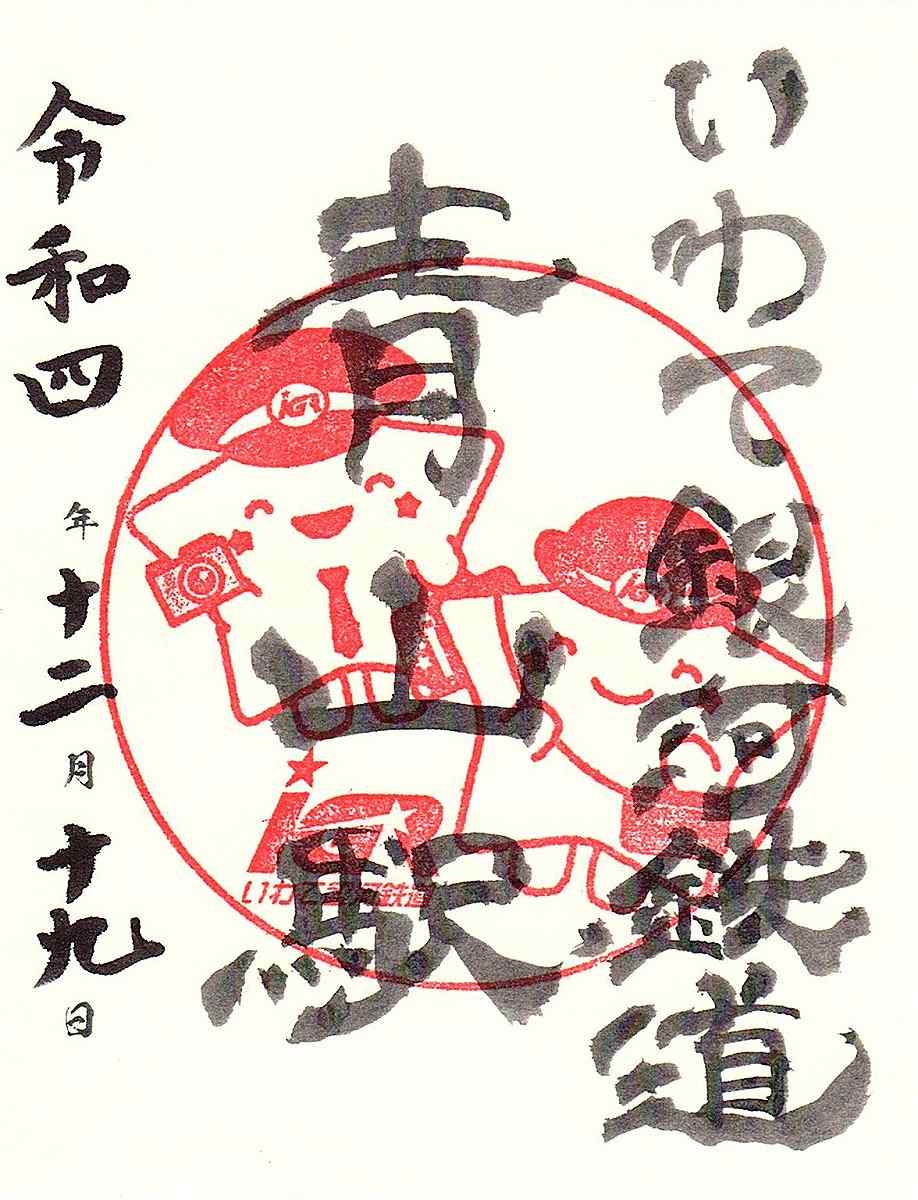 いわて銀河鉄道
青山駅
令和四年十二月十九日
IGR
いわて銀河鉄道